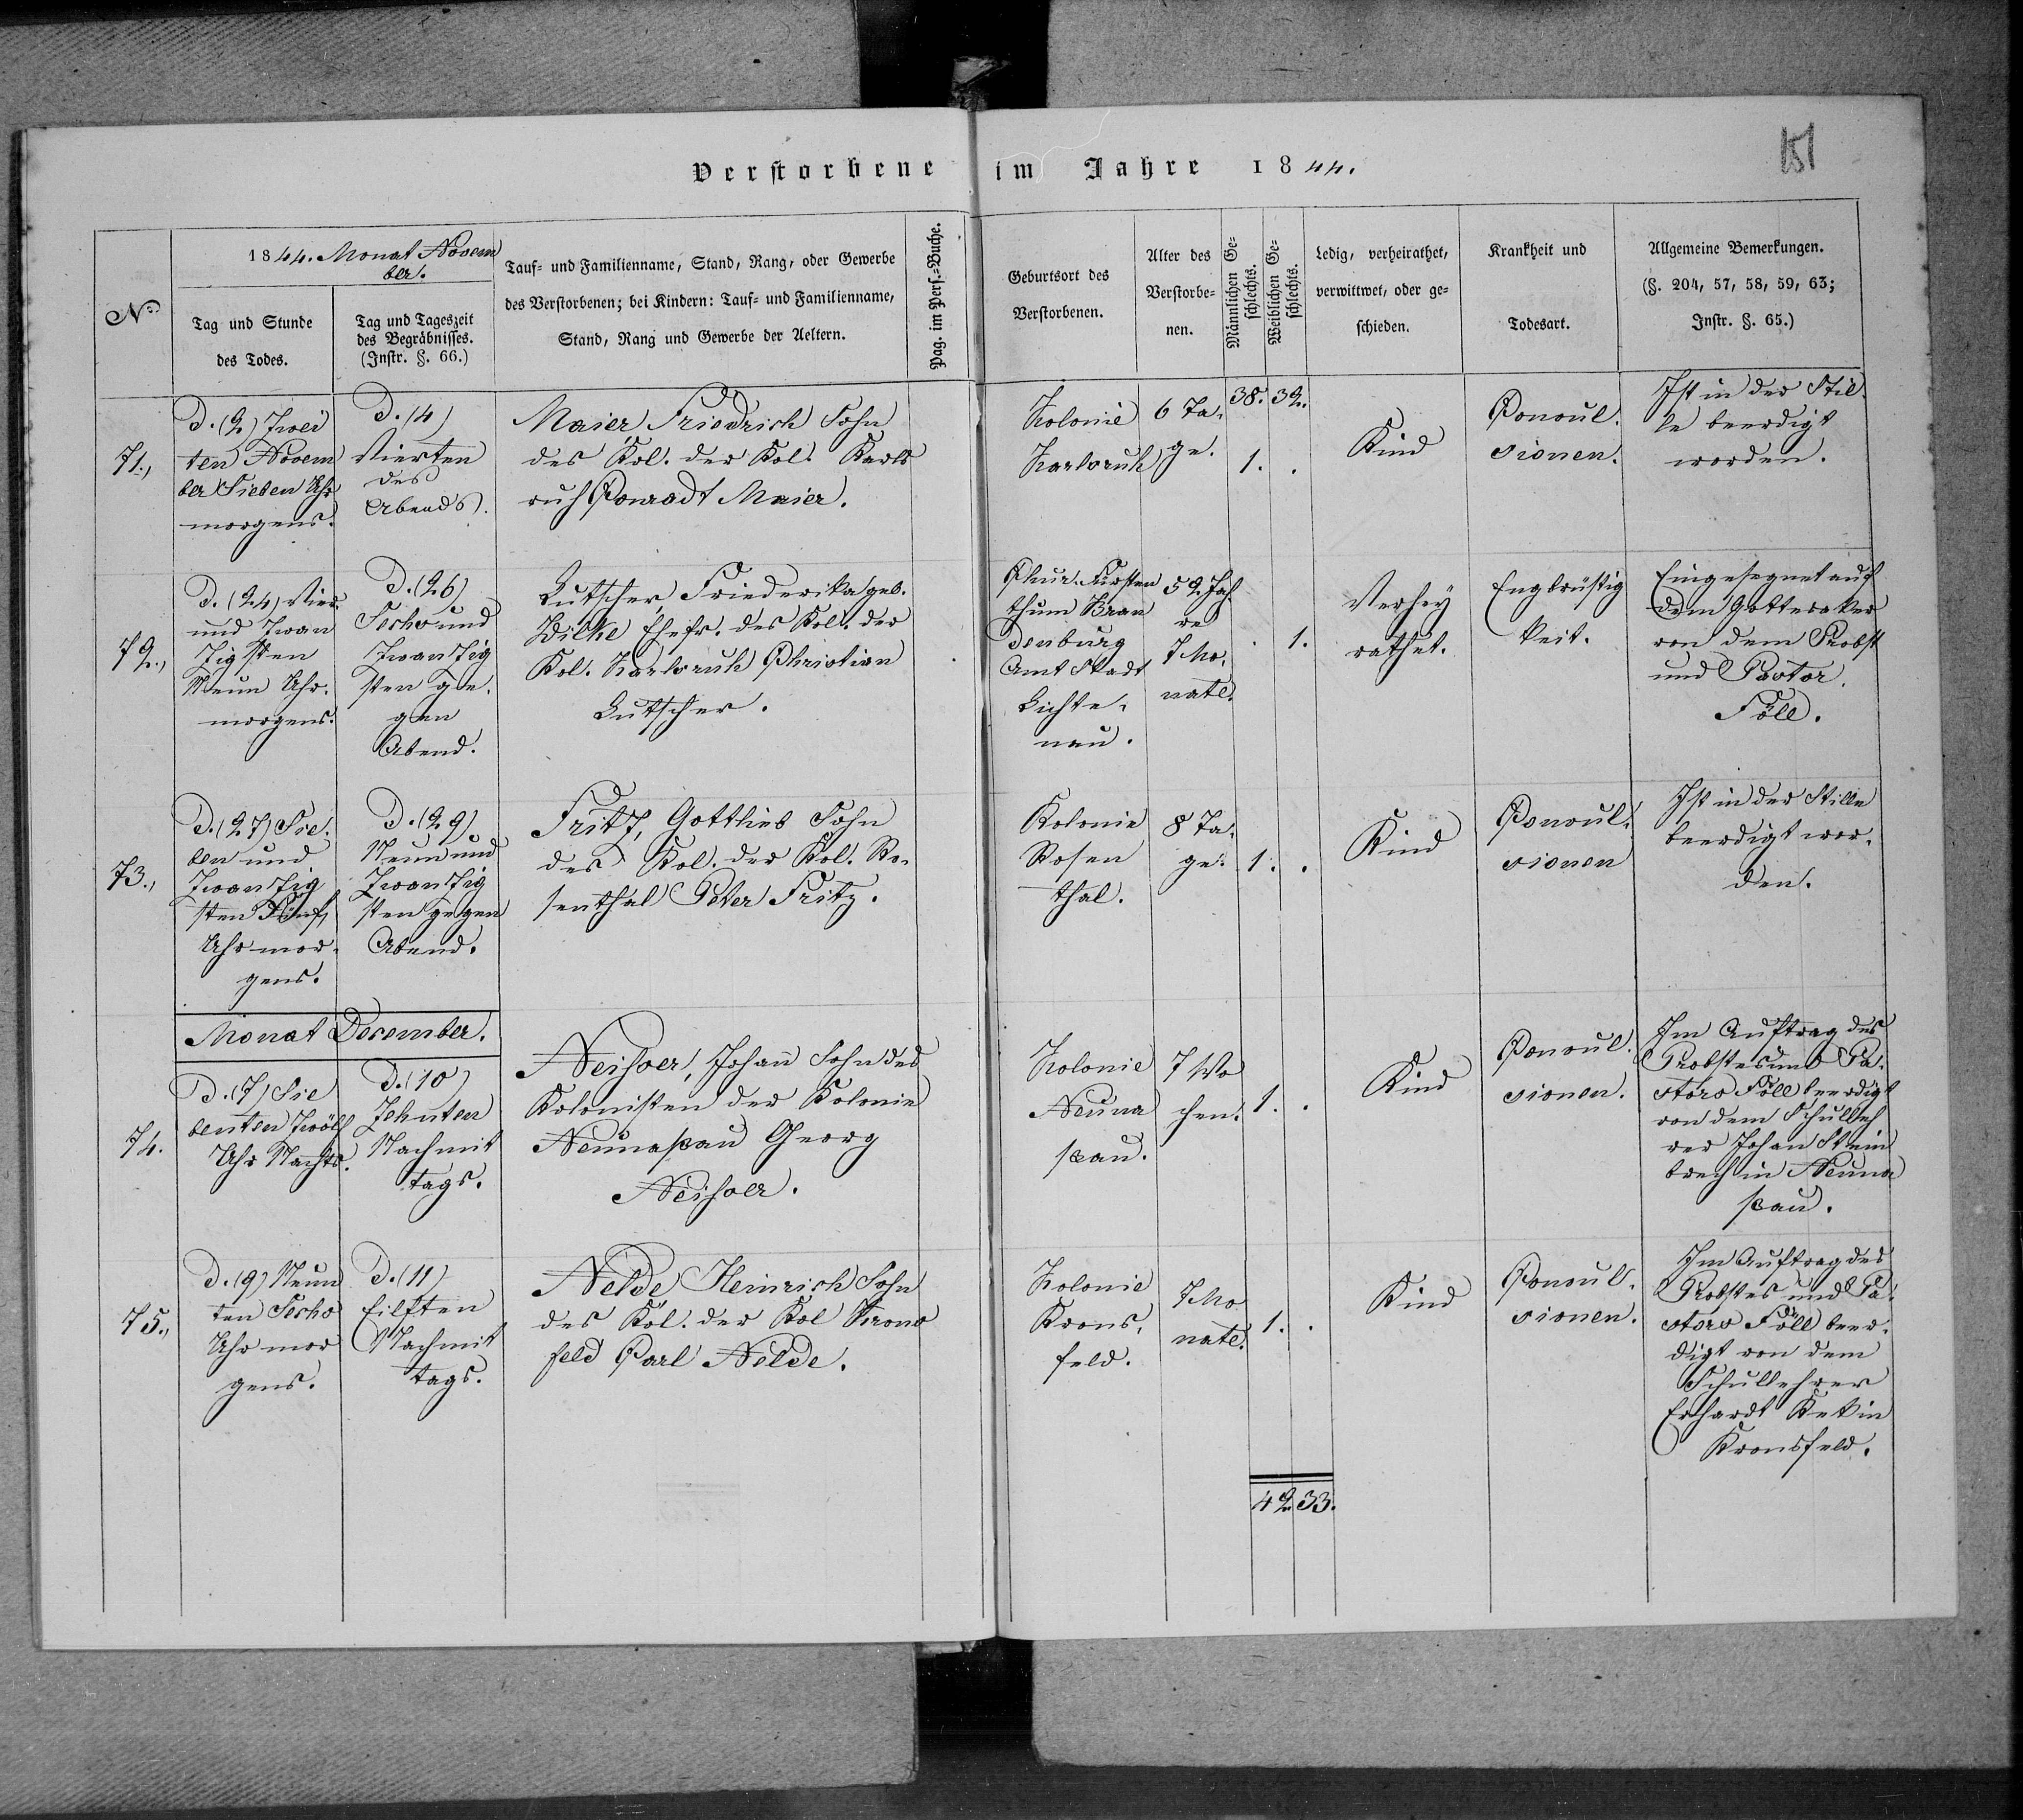 Verstorbene im Jahre 1844.
151
No
1844. Monat Novem
ber.
Tag und Stunde
des Todes.
Tag und Tageszeit
des Begräbnisses.
(Instr. §. 66.)
Tauf- und Familienname, Stand, Rang, oder Gewerbe
des Verstorbenen; bei Kindern: Tauf- und Familienname,
Stand, Rang und Gewerbe der Aeltern.
Pag. im Pers.-Buche.
Geburtsort des
Verstorbenen.
Alter des
Verstorbe-
nen.
Männlichen Ge-
schlechts.
Weiblichen Ge-
schlechts.
Ledig, verheirathet,
verwittwet, oder ge-
schieden.
Krankheit und
Todesart.
Allgemeine Bemerkungen.
(§. 204, 57, 58, 59, 63;
Instr. §. 65.)
71.,
D. (2) Zwei
ten Novem
ber Sieben Uhr
morgens.
D. (4)
Vierten
des
Abends.
Maier, Friedrich Sohn
des Kol. der Kol. Karls
ruh Conradt Maier.
Kolonie
Karlsruh
6 Ta.
ge.
38. 32.
1. .
Kind
Convul.
sionen.
Ist in der Stil.
le beerdigt
worden.
72.,
D. (24) Vier.
und Zwan
zigsten
Neun Uhr.
morgens.
D. (26)
Sechs und
Zwanzig
sten ge.
gen
Abend.
Lutscher, Friederika geb.
Wilke Ehefr. des Kol. der
Kol. Karlsruh Christian
Lutscher.
Chur. Fürsten
thum Bran
denburg
Amt Stadt
Lichte.
nau.
52. Jah
re
7 Mo.
nate.
. 1.
Verhey
rathet.
Engbrüstig
keit.
Eingesegnet auf
dem Gottesaker
von dem Probst
und Pastor.
Föll.
73.,
D. (27) Sie.
ben und
Zwanzig
sten Fünf
Uhr mor.
gens.
D. (29)
Neun und
Zwanzig
sten gegen
Abend.
Fritz, Gottlieb Sohn
des Kol. der Kol. Ro.
senthal Peter Fritz.
Kolonie
Rosen
thal.
8 Ta.
ge.
1. .
Kind
Convul.
sionen
Ist in der Stille
beerdigt wor.
den.
Monat December.
74.
D. (7) Sie
benten Zwölf
Uhr Nachts.
D. (10)
Zehnten
Nachmit
tags.
Johan Sohn des
Kolonisten der Kolonie
Neunaßau Georg
Kolonie
Neuna
ßau.
7 Wo
chen.
1. .
Kind
Convul.
sionen.
Im Auftrag des
Probstes und Pa.
stors Föll beerdigt
von dem Schulleh
rer Johan Stein
brech in Neuna
ßau.
75.,
D. (9) Neun
ten Sechs
Uhr mor
gens.
D. (11)
Eilften
Nachmit
tags.
Nelde Heinrich Sohn
des Kol. der Kol Krons
feld Carl Nelde.
Kolonie
Krons.
feld.
7 Mo
nate.
1. .
Kind
Convul.
sionen.
Im Auftrag des
Probstes und Pa.
stors Föll beer.
digt von dem
Schullehrer
Erhardt in
Kronsfeld.
42 33.